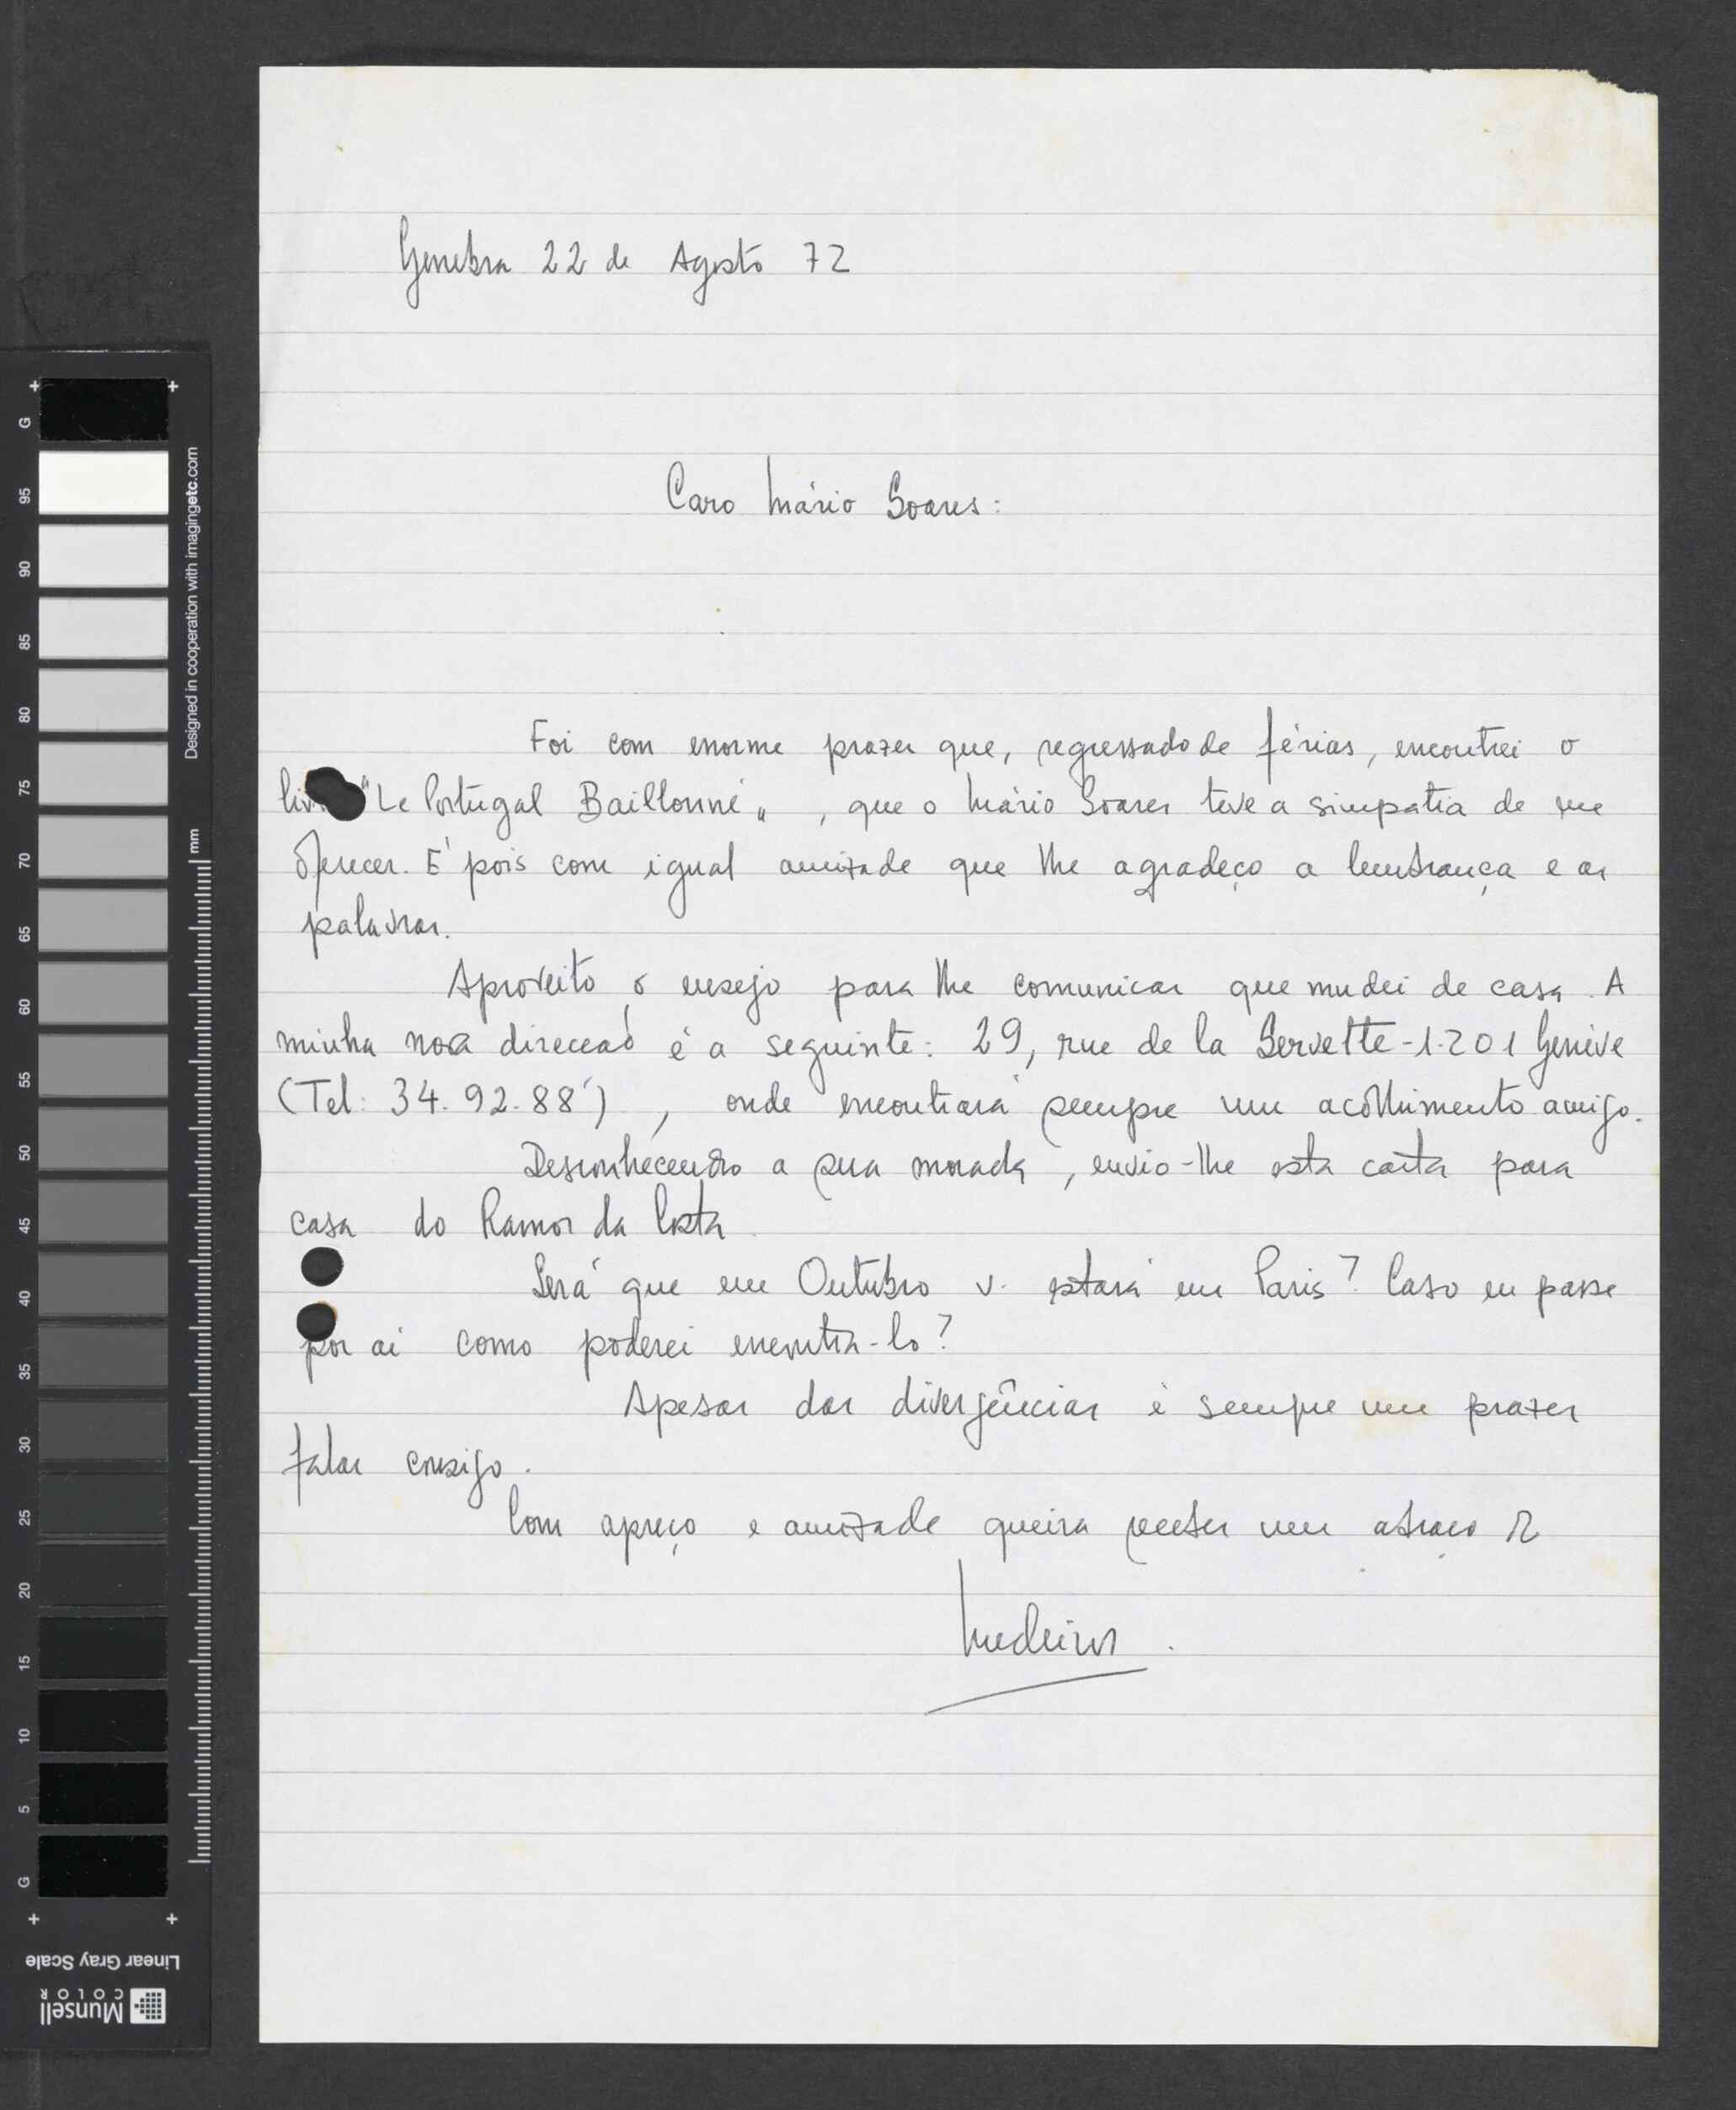 Genebra 22 de Agosto 72
Caro Mário Soares:
Foi com enorme prazer que, regressado de férias, encontrei o
"Le Portugal Baillonné", que o Mário Soares teve a simpatia de me
oferecer. É pois com igual amizade que lhe agradeço a lembrança e as
palavras.
Aproveito o ensejo para lhe comunicar que mudei de casa. A
minha nova direcção é a seguinte: 29, rue de la Servette - 1.201 Genève
(Tel: 34.92.88), onde encontrará sempre um acolhimento amigo.
Desconhecendo a sua morada, envio-lhe esta carta para
casa do Ramos da Costa.
Será que em Outubro v. estará em Paris? Caso eu passe
por ai como poderei encontra-lo?
Apesar das divergências é sempre um prazer
falar consigo.
Com apreço e amizade queira receber um abraço do
Medeiros.
G
95
90
85
80
75
70
65
60
55
50
45
40
35
30
25
20
15
10
5
G
mm
Designed in cooperation with imagingetc.com
Linear Gray Scale
Munsell
COLOR